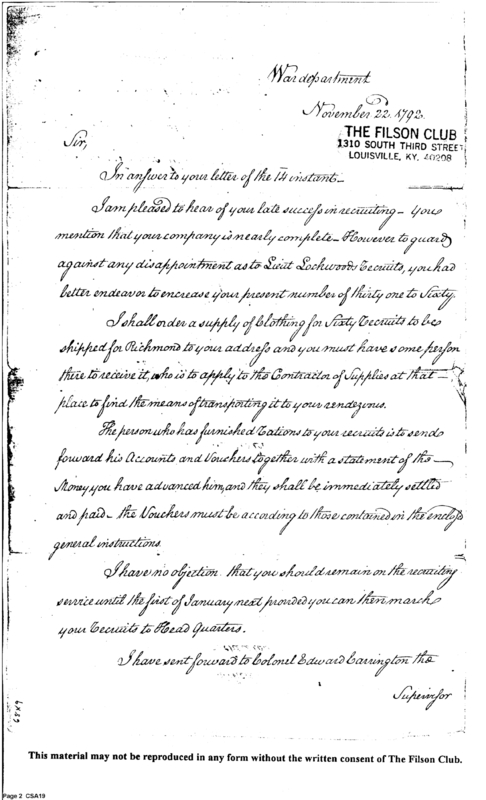 War department
November 22. 1792.
THE FILSON CLUB
1310 SOUTH THIRD STREET
LOUISVILLE, KY. 40208
Sir,
In answer to your letter of the 14 instant—
I am pleased to hear of your late success in recruiting — you
mention that your company is nearly complete — However to guard
against any disappointment as to Lieut Lockwoods recruits, you had
better endeavor to encrease your present number of thirty one to Sixty.
I shall order a supply of Clothing for Sixty recruits to be
shipped for Richmond to your address and you must have some person
there to receive it, who is to apply to the Contractor of Supplies at that —
place to find the means of transporting it to your rendezvous.
The person who has furnished rations to your recruits is to send
forward his Accounts and Vouchers together with a statement of the —
Money you have advanced him, and they shall be immediately settled
and paid — the Vouchers must be according to those contained in the enclosd
general instructions.
I have no objection that you should remain on the recruiting
service until the first of January next provided you can then march
your recruits to Head Quarters.
I have sent forward to Colonel Edward Carrington the
Supervisor
This material may not be reproduced in any form without the written consent of The Filson Club.
Page 2 CSA19